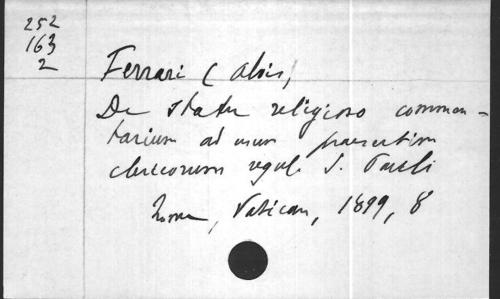 252
163
2
Ferrari (Alois,
De statu religioso commen-
tarium ad usum praesertim
clericorum regul. S. Pauli
Roma, Vatican, 1899, 8